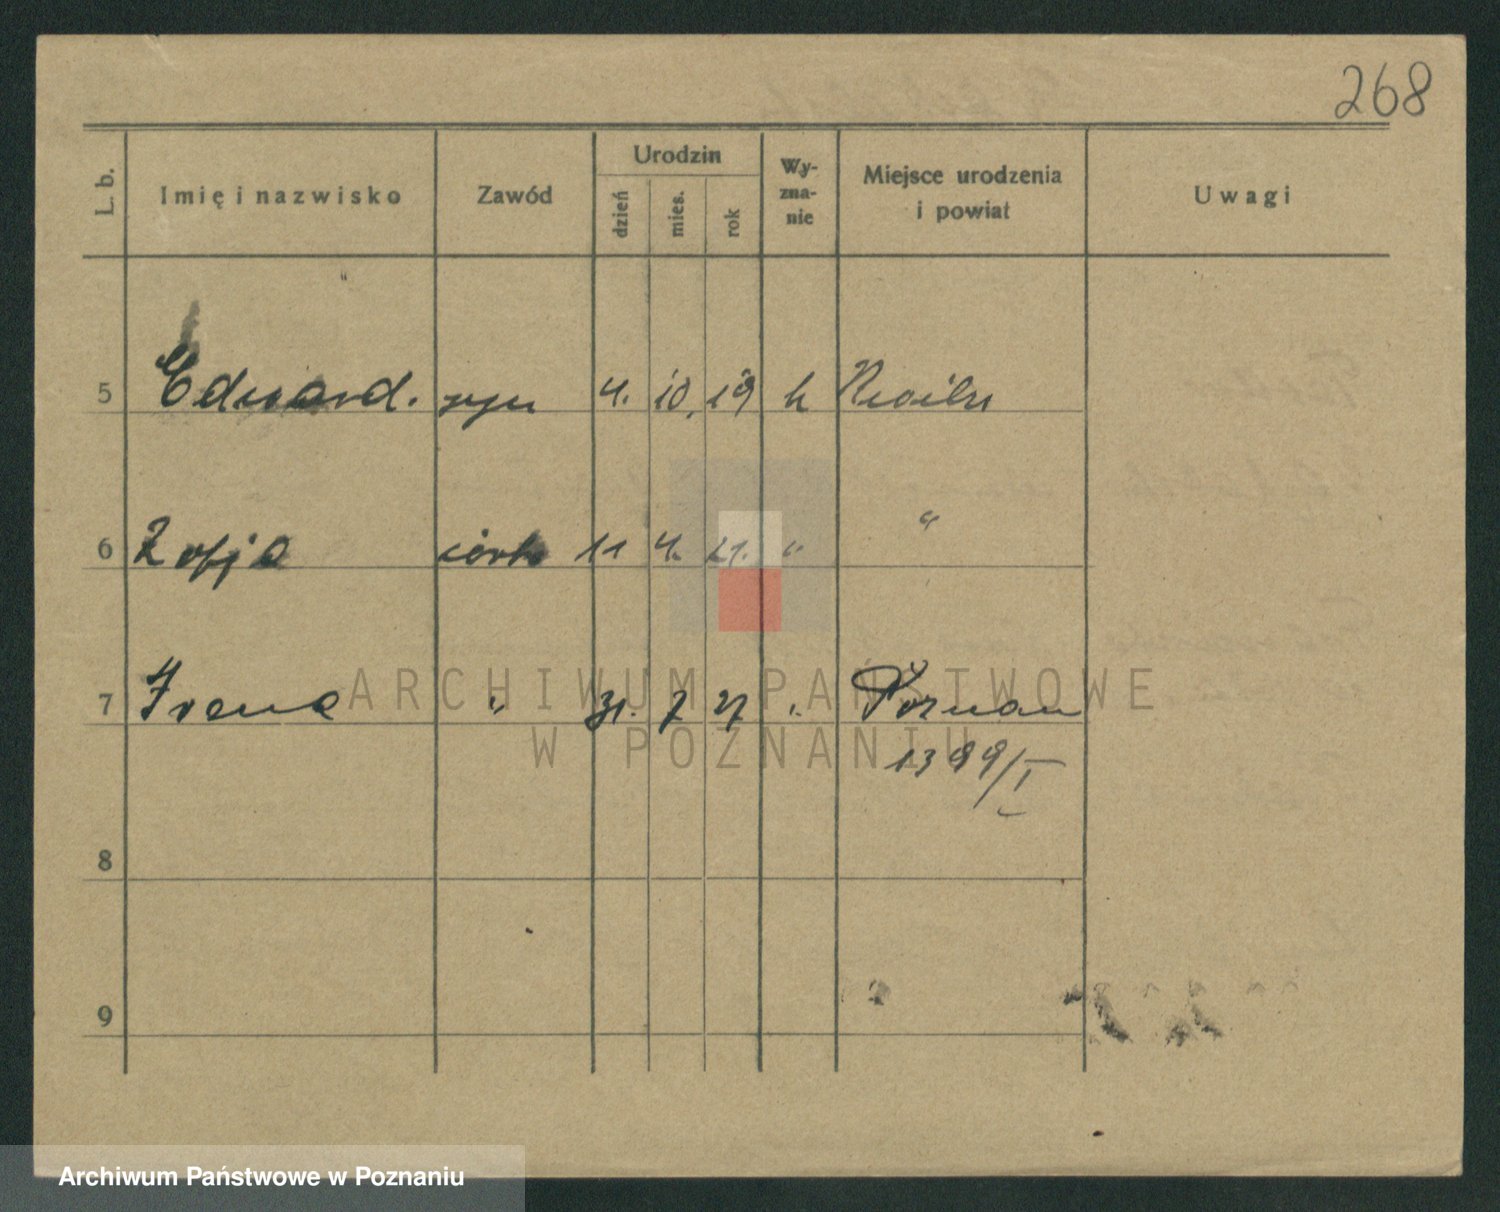 268
L. b.
Imię i nazwisko
Zawód
Urodzin
dzień
mies.
rok
Wy-
zna-
nie
Miejsce urodzenia
i powiat
Uwagi
5 Edward. syn 4. 10. 19 k
6 Zofja córka 11 4. 21. " "
7 Irena " 31. 7 27 " Poznań
1399/I
8
9
ARCHIWUM PAŃSTWOWE
W POZNANIU
Archiwum Państwowe w Poznaniu